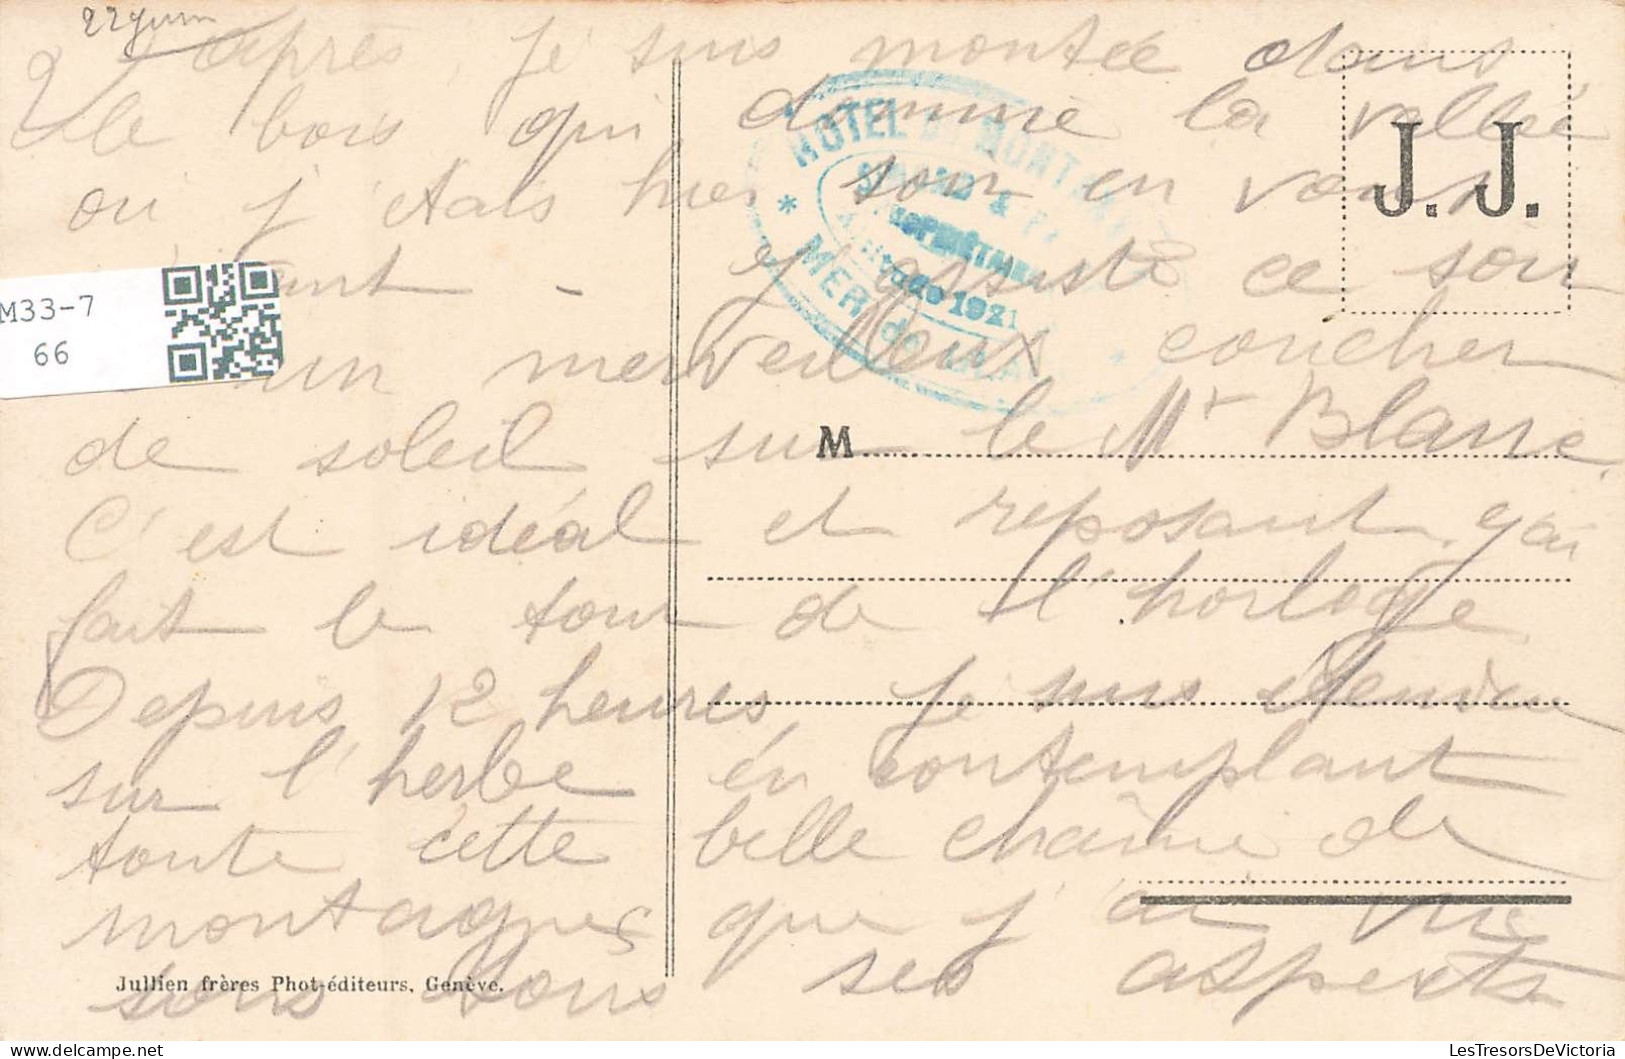 22 juin
après, je suis montée dans
le bois qui domine la vallée
où j'étais hier soir en vous
J'assiste ce soir
un merveilleux coucher
de soleil sur le Mt Blanc.
C'est idéal et reposant. J'ai
fait le tour de l'horloge
Depuis 12 heures, je suis
sur l'herbe en contemplant
toute cette belle chaîne de
montagnes que j'ai vue
sous tous ses aspects
HOTEL DU MONTANVERT
PROPRIÉTAIRES
Altitude 1921
MER de GLACE
J. J.
M
M33-7
66
Jullien frères Phot-éditeurs, Genève.
LesTresorsDeVictoria
LesTresorsDeVictoria